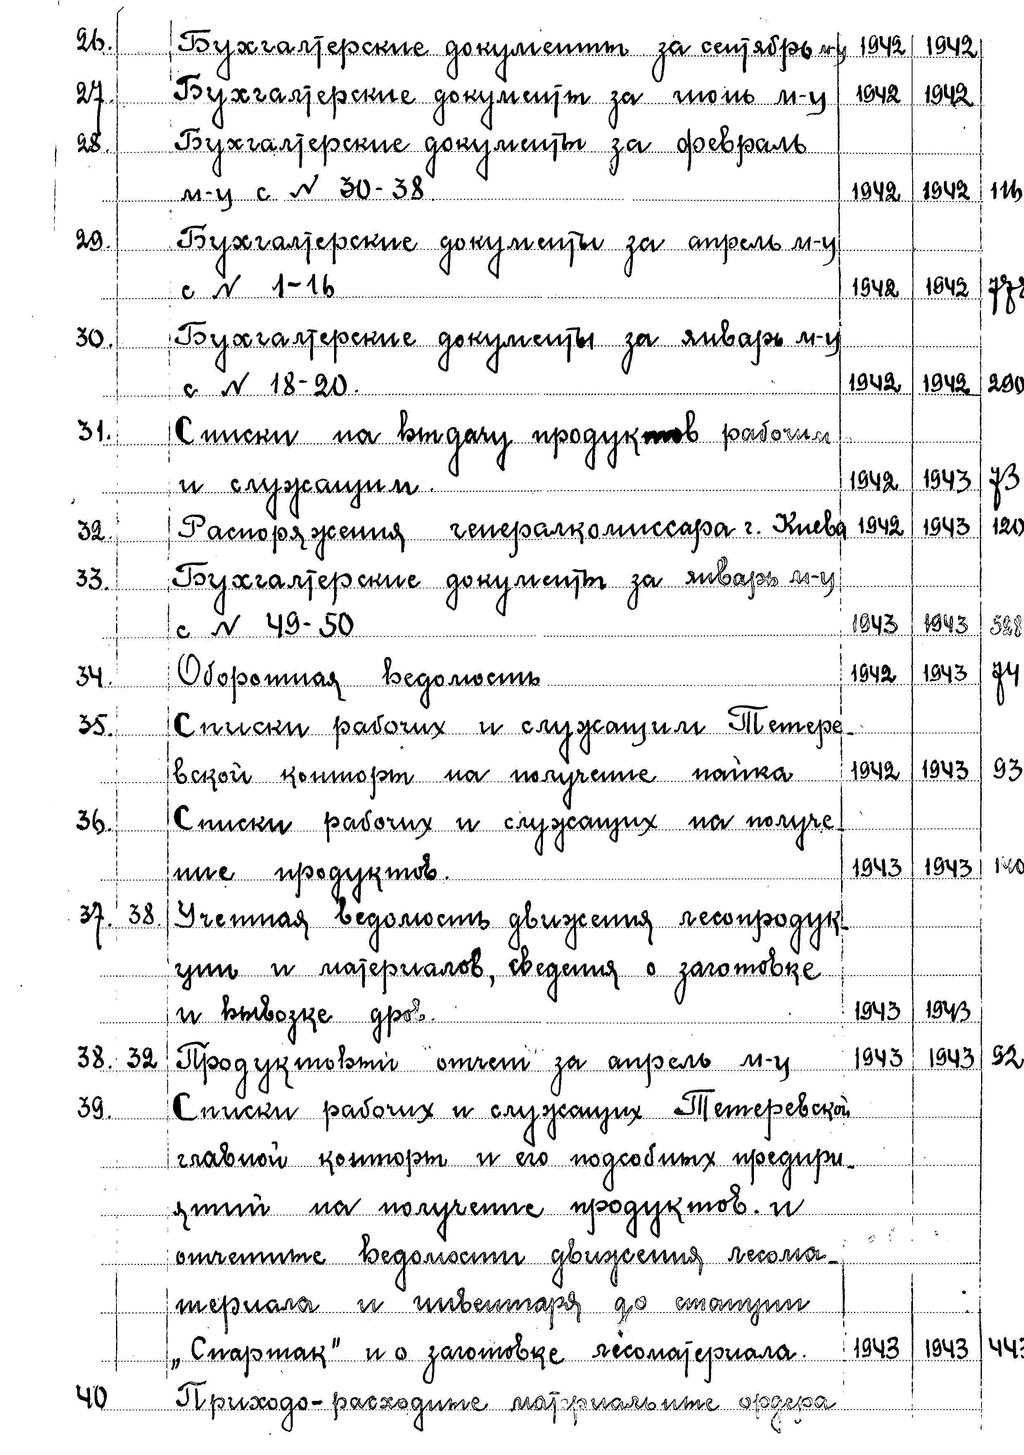 26. Бухгалтерские документы за сентябрь м-ц 1942 1942
27. Бухгалтерские документы за июнь м-ц 1942 1942
28. Бухгалтерские документы за февраль
м-ц с N 30-38 1942 1942 116
29. Бухгалтерские документы за апрель м-ц
с N 1-16 1942 1942
30. Бухгалтерские документы за январь м-ц
с N 18-20. 1942 1942 290
31. Списки на выдачу продуктов рабочим
и служащим. 1942 1943 73
32. Распоряжения генералкомиссара г. Киева 1942 1943 120
33. Бухгалтерские документы за январь м-ц
с N 49-50 1943 1943 528
34. Оборотная ведомость 1942 1943 74
35. Списки рабочих и служащим Тетере-
вской конторы на получение пайка 1942 1943 93
36. Списки рабочих и служащих на получе-
ние продуктов. 1943 1943
37. 38. Учетная ведомость движения лесопродук-
ции и материалов, сведения о заготовке
и вывозке дров. 1943 1943
38. 39 Продуктовый отчет за апрель м-ц 1943 1943 92
39. Списки рабочих и служащих Тетеревской
главной конторы и его подсобных предпри-
ятий на получение продуктов. и
отчетные ведомости движения лесома-
териала и инвентаря до станции
„Спартак" и о заготовке лесоматериала. 1943 1943 443
40 Приходо-расходные материальные ордера